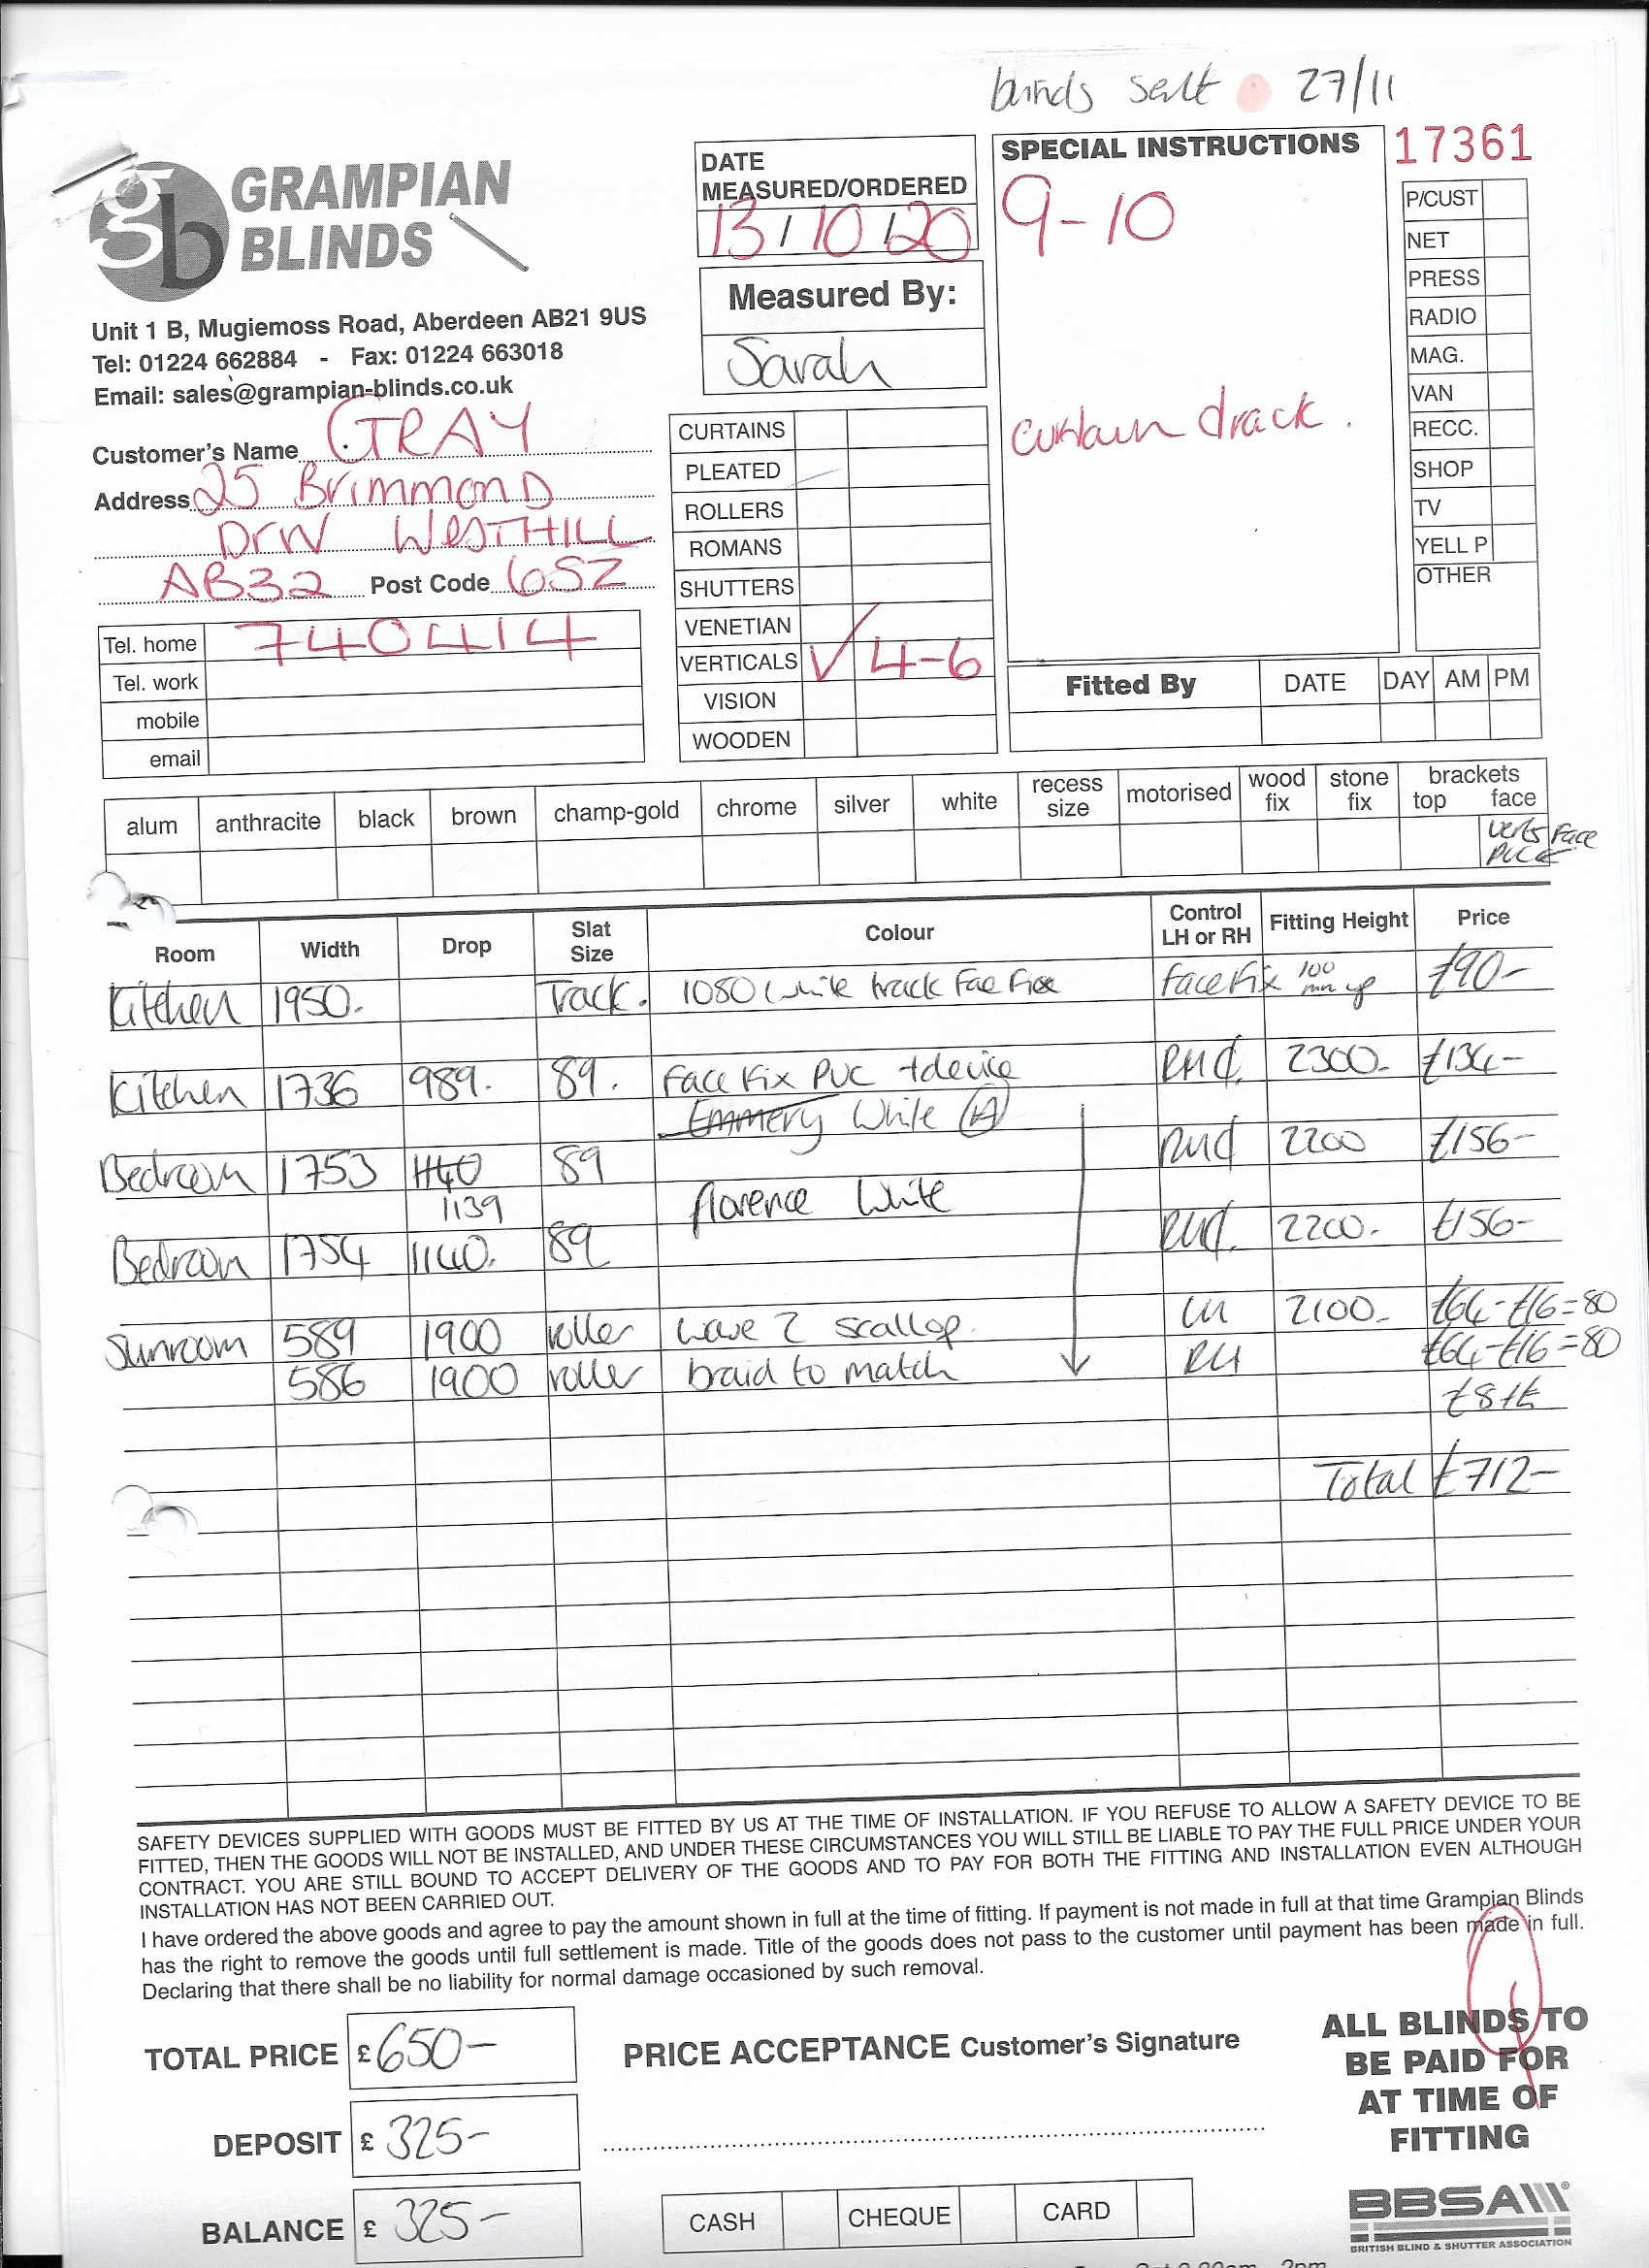 blinds sent 27/11
GRAMPIAN
BLINDS
gb
Unit 1 B, Mugiemoss Road, Aberdeen AB21 9US
Tel: 01224 662884 - Fax: 01224 663018
Email: sales@grampian-blinds.co.uk
Customer's Name GRAY
Address 25 Brimmond
Drive WESTHILL
AB32 Post Code 6SZ
Tel. home 740414
Tel. work
mobile
email
DATE
MEASURED/ORDERED
13/10/20
Measured By:
Sarah
CURTAINS
PLEATED
ROLLERS
ROMANS
SHUTTERS
VENETIAN
VERTICALS ✓ 4-6
VISION
WOODEN
SPECIAL INSTRUCTIONS
9-10
curtain track.
17361
P/CUST
NET
PRESS
RADIO
MAG.
VAN
RECC.
SHOP
TV
YELL P
OTHER
Fitted By DATE DAY AM PM
alum anthracite black brown champ-gold chrome silver white recess size motorised wood fix stone fix brackets top face
verts Face
PVC
Room Width Drop Slat Size Colour Control LH or RH Fitting Height Price
Kitchen 1950. Track. 1080 white track Face Fix Face Fix 100 mm up £90-
Kitchen 1736 989. 89. Face Fix PVC + device 2300. £134-
Emmery White (A)
Bedroom 1753 1140 89 2200 £156-
1139 florence White
Bedroom 1754 1140. 89 2200. £156-
Sunroom 589 1900 roller wave 2 scallop. LH 2100. £64-£16=80
586 1900 roller braid to match RH £64-£16=80
Total £712-
SAFETY DEVICES SUPPLIED WITH GOODS MUST BE FITTED BY US AT THE TIME OF INSTALLATION. IF YOU REFUSE TO ALLOW A SAFETY DEVICE TO BE
FITTED, THEN THE GOODS WILL NOT BE INSTALLED, AND UNDER THESE CIRCUMSTANCES YOU WILL STILL BE LIABLE TO PAY THE FULL PRICE UNDER YOUR
CONTRACT. YOU ARE STILL BOUND TO ACCEPT DELIVERY OF THE GOODS AND TO PAY FOR BOTH THE FITTING AND INSTALLATION EVEN ALTHOUGH
INSTALLATION HAS NOT BEEN CARRIED OUT.
I have ordered the above goods and agree to pay the amount shown in full at the time of fitting. If payment is not made in full at that time Grampian Blinds
has the right to remove the goods until full settlement is made. Title of the goods does not pass to the customer until payment has been made in full.
Declaring that there shall be no liability for normal damage occasioned by such removal.
TOTAL PRICE £650-
DEPOSIT £ 325-
BALANCE £ 325-
PRICE ACCEPTANCE Customer's Signature
CASH CHEQUE CARD
ALL BLINDS TO
BE PAID FOR
AT TIME OF
FITTING
BBSA
BRITISH BLIND & SHUTTER ASSOCIATION